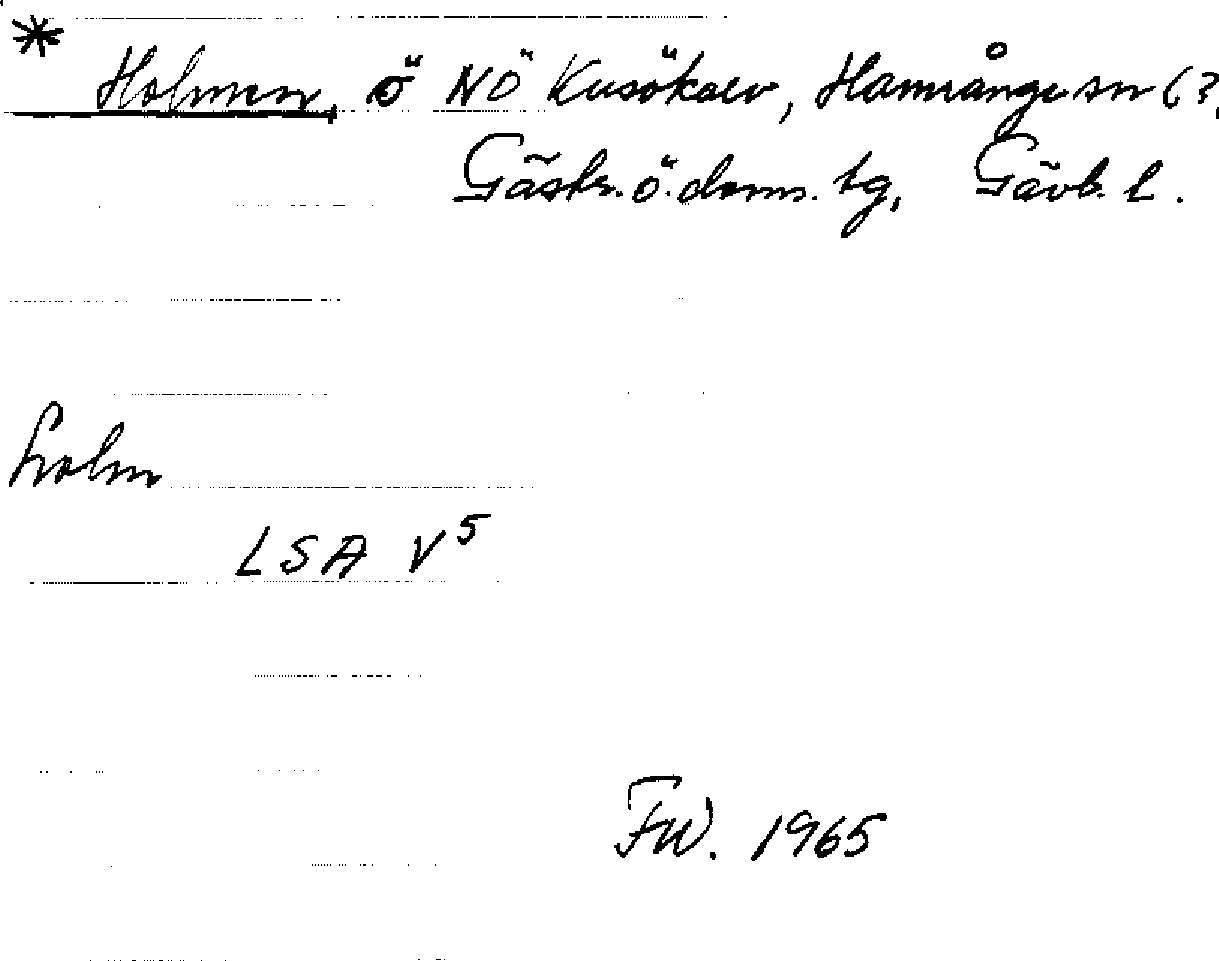 * Holmen, ö NÖ Kusökalv, Hamrånge sn (?,
Gästr. ö. doms. tg, Gävb. l.
holm
LSA V⁵
FW. 1965